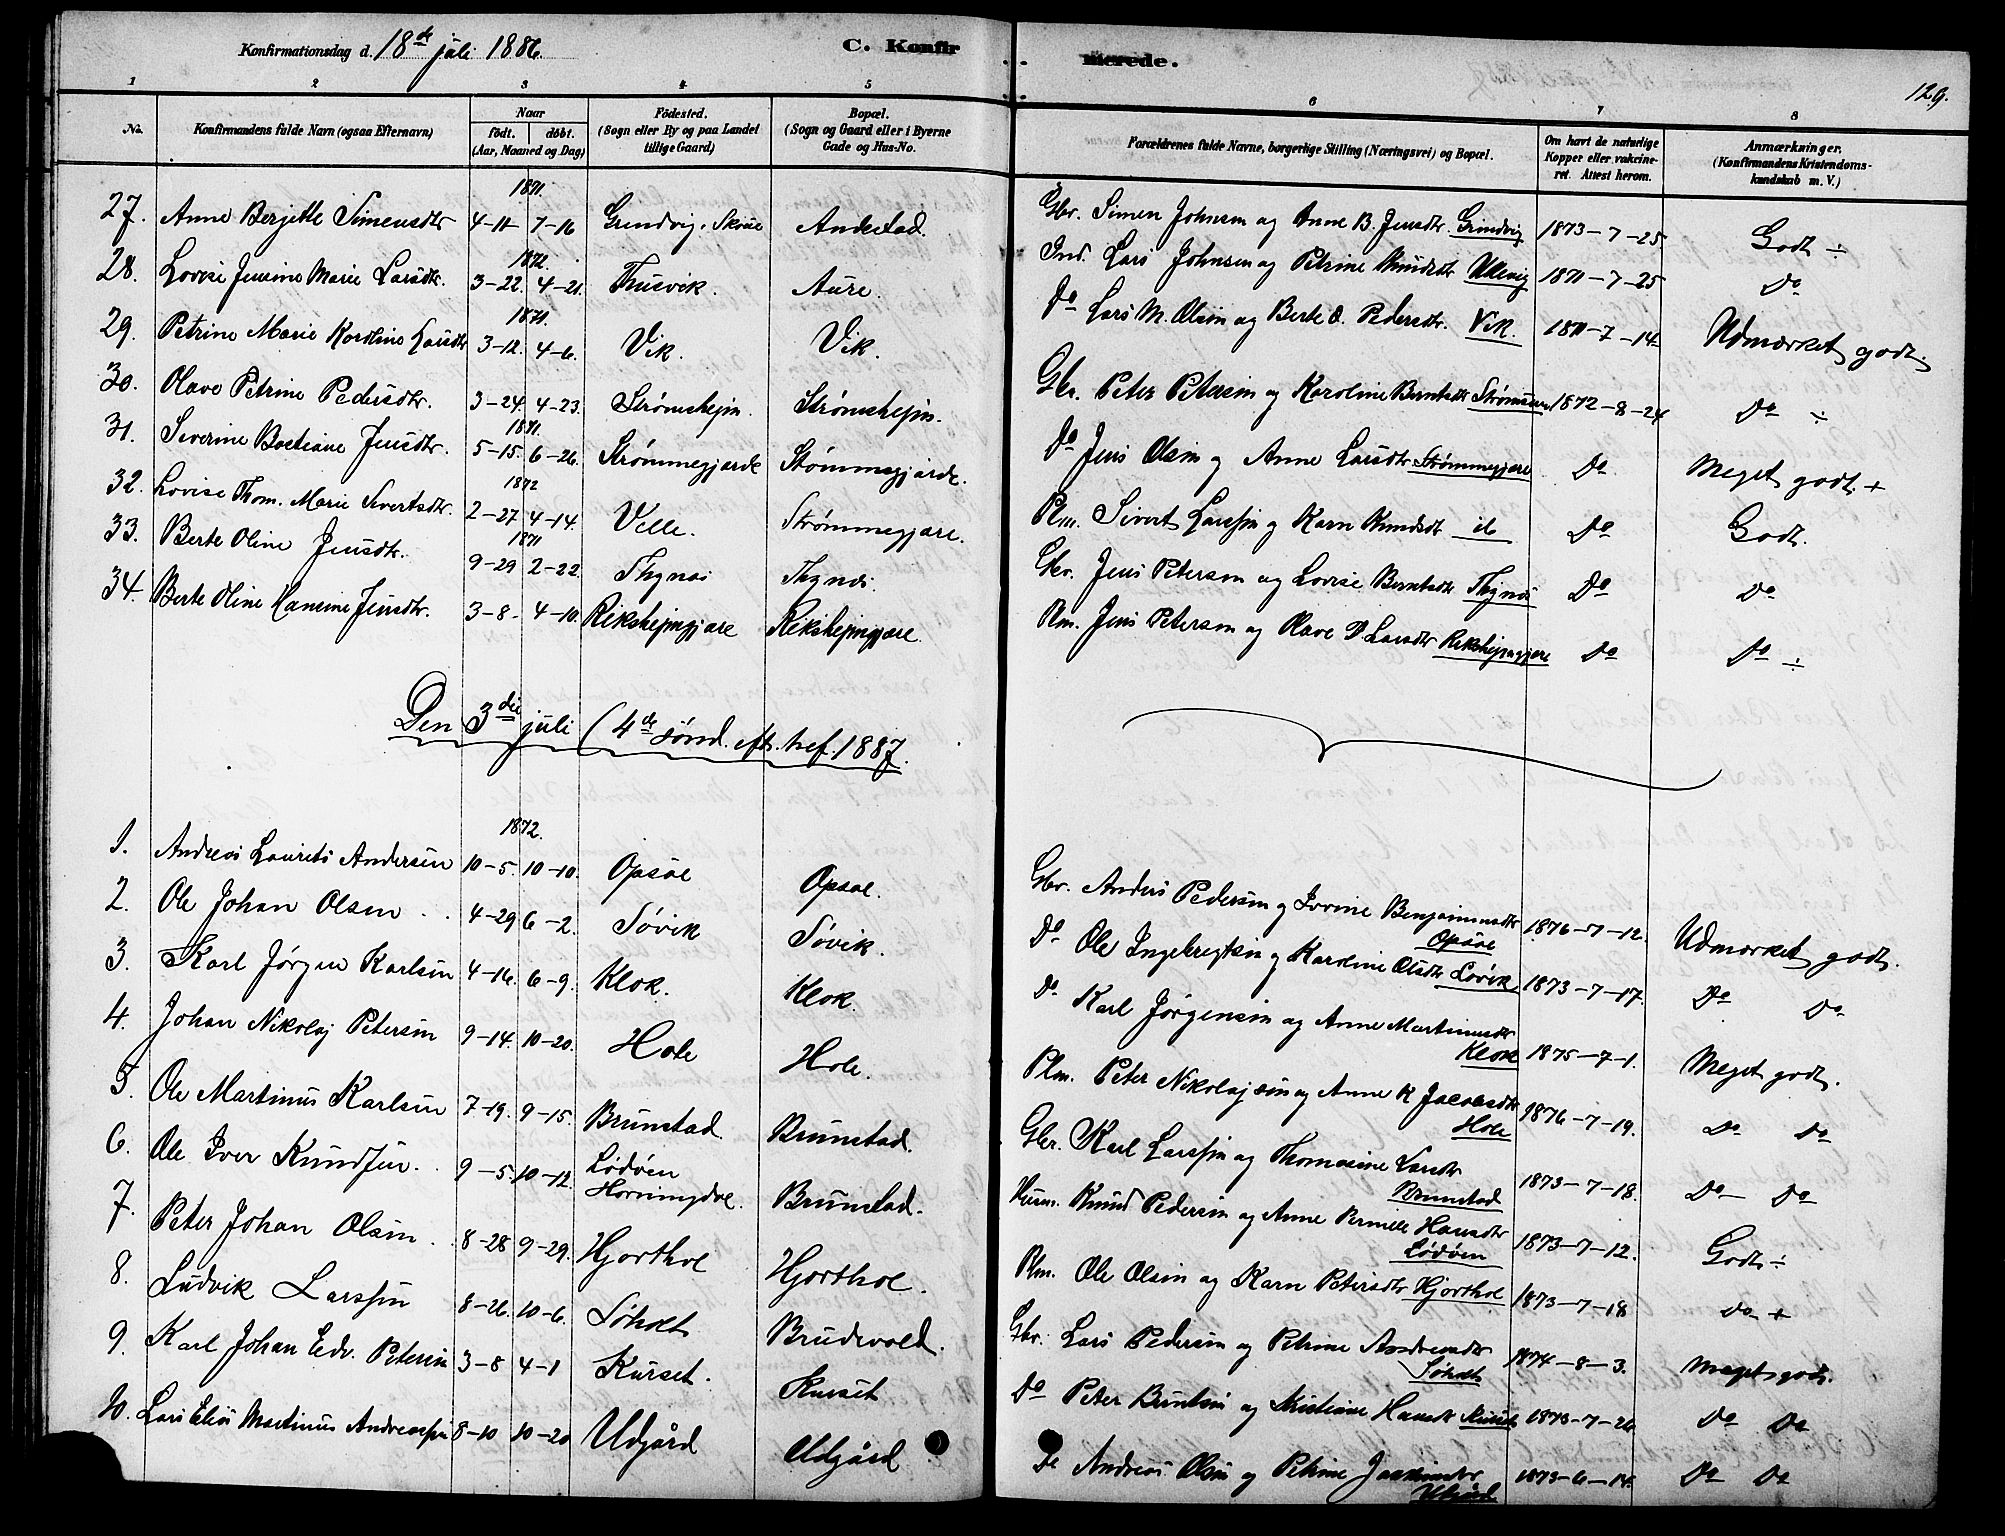 Konfirmationsdag d. 18de juli 1886.
C. Konfirmerede.
129.
1 2 3 4 5 6 7 8
No.
Konfirmandens fulde Navn (ogsaa Efternavn)
Naar
født. døbt.
(Aar, Maaned og Dag)
Fødested.
(Sogn eller By og paa Landet
tillige Gaard)
Bopæl.
(Sogn og Gaard eller i Byerne
Gade og Hus-No.
Forældrenes fulde Navne, borgerlige Stilling (Næringsvei) og Bopæl.
Om havt de naturlige
Kopper eller vakcine-
ret. Attest herom.
Anmærkninger.
(Konfirmandens Kristendoms-
kundskab m. V.)
1871.
27. Anne Berjette Simensdtr 4-11 7-16 Andestad. Gbr. Simen Johnsen og Anne B. Jensdtr. Grindvig 1873-7-25 Godt ÷
1872.
28. Lovise Jensine Marie Larsdtr. 3-22. 4-21. Thusvik. Aure. Ind. Lars Johnsen og Petrine Knudsdtr 1871-7-25 Do
1871.
29. Petrine Marie Karoline Larsdtr 3-12. 4-6. Vik. Vik. Do Lars M. Olsen og Berte O. Pedersdtr. Vik. 1871-7-14 Udmærket godt.
30. Olave Petrine Pedersdtr. 3-24. 4-23. Strømshejm. Strømshejm. Gbr. Peter Petersen og Karoline Berntsdtr 1872-8-24 Do ÷
1871.
31. Severine Bastiane Jensdtr. 5-15. 6-26. Strømmegjærde Strømmegjærde. Do Jens Olsen og Anne Larsdtr Strømmegjære Do. Meget godt. +
1872
32. Lovise Thom. Marie Sivertsdtr. 2-27 4-14. Velle. Strømmegjære. Plm. Sivert Larssen og Karn Knudsdtr ib Do Godt.
1871
33. Berte Oline Jensdtr. 9-29 2-22. Thynæs Thynæs. Gbr. Jens Peterson og Lovise Berntsdtr Thynæs Do Do
34. Berte Oline Hansine Jensdtr. 3-8. 4-10. Rekshejmgjære Rekshejmgjære. Plm. Jens Peterson og Olave D. Larsdtr Rekshejmgjære Do Do ÷
Den 3die juli (4de sønd. eft. tref. 1887.
1872.
1. Andreas Laurits Andersen 10-5. 10-10. Opsøe Opsøe. Gbr. Anders Pedersen og Benjaminsdtr 1876-7-12. Udmærket godt.
Opsøe
2. Ole Johan Olsen 4-29 6-2. Søvik Søvik. Do Ole Ingebregtsen og Karoline Olsdtr Søvik. 1873-7-17. Do Do
3. Karl Jørgen Karlsen 4-16. 6-9. Klok. Klok. Do Karl Jørgensen og Anne Martinusdtr 1875-7-1. Meget godt.
Klok
4. Johan Nikolaj Petersen 9-14. 10-20. Hole Hole. Plm. Peter Nikolajsen og Anne K Jacobsdtr 1876-7-19. Do Do
Hole
5. Ole Martinus Karlsen 7-19. 9-15. Brunstad. Brunstad. Gbr. Karl Larssen og Thomasine Larsdtr 1873-7-18. Do Do
Brunstad
6. Ole Iver Knudsen. 9-5 10-12. Lødøen Brunstad. Knud Pedersen og Anne Pernille Hansdtr 1873-7-12. Godt ÷
Lødøen
7. Peter Johan Olsen. 8-28 9-29. Hjorthol Hjorthol. Plm. Ole Olsen og Karn Petersdtr Hjorthol 1873-7-18 Do +
8. Ludvik Larssen 8-26. 10-6. Søholt Brudevold. Gbr. Lars Pedersen og Petrine Andreasdtr 1874-8-3. Meget godt.
Søholt
9. Karl Johan Edv. Petersen 3-8 4-1 Kurset. Kurset Do Peter Berntsen og Kristiane Hansdtr Kurset 1873-7-26 Do Do
10. Lars Elias Martinus Andreassen 8-10 10-20 Udgård Udgård Do Andreas Olsen og Petrine 1873-6-14. Do Do
Udgård